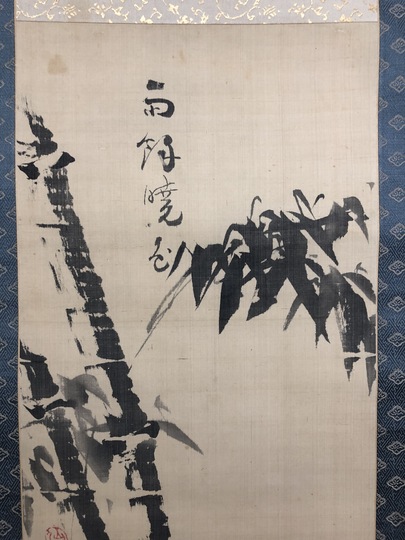 雨餘曉色